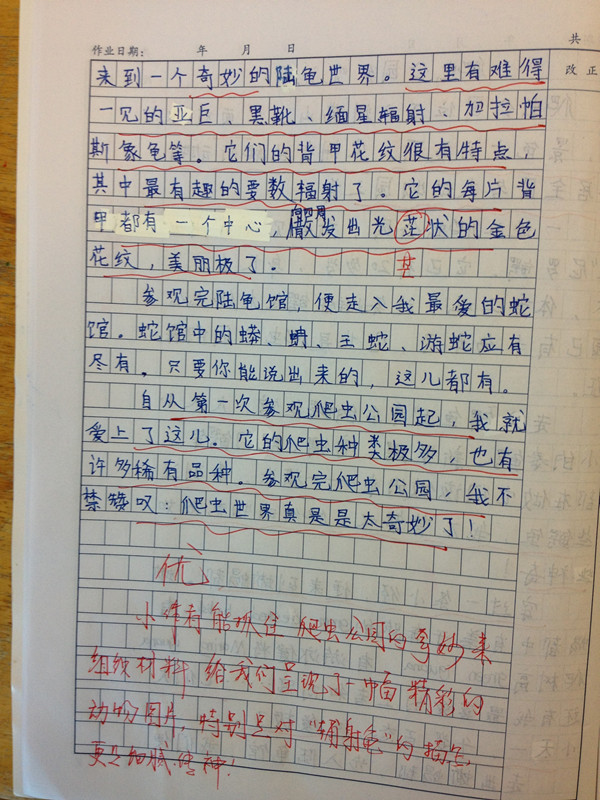 共
作业日期： 年 月 日
改正
来到一个奇妙的陆龟世界。这里有难得
一见的亚巨、黑靴、缅星辐射、加拉帕
斯象龟等。它们的背甲花纹很有特点，
其中最有趣的要数辐射了。它的每片背
向四周
甲都有一个中心，散发出光茫状的金色
花纹，美丽极了。
芒
参观完陆龟馆，便走入我最爱的蛇
馆。蛇馆中的蟒、蚺、王蛇、游蛇应有
尽有。只要你能说出来的，这儿都有。
自从第一次参观爬虫公园起，我就
爱上了这儿。它的爬虫种类极多，也有
许多稀有品种。参观完爬虫公园，我不
禁赞叹：爬虫世界真是是太奇妙了！
优
小作者能抓住爬虫公园的奇妙来
组织材料，给我们呈现了一幅幅精彩的
动物图片，特别是对“辐射龟”的描写
更是细腻传神！